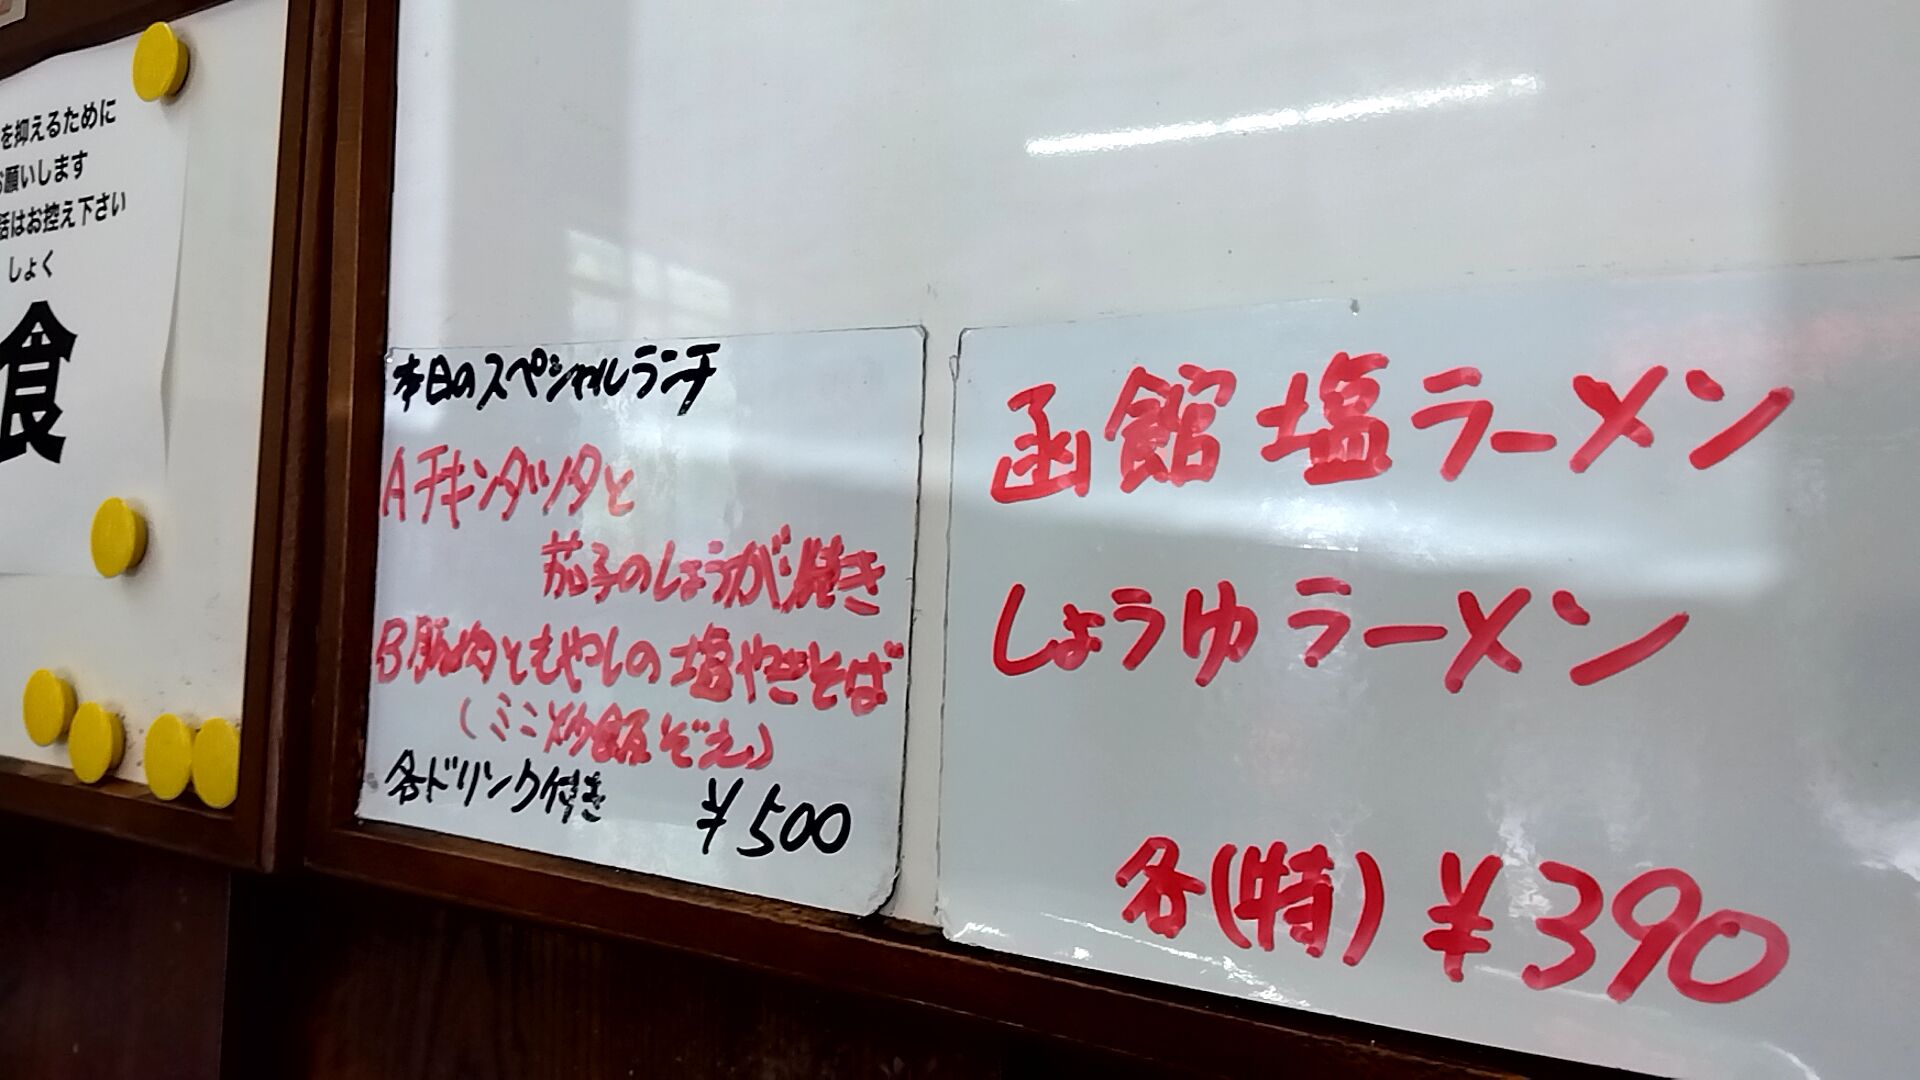 を抑えるために
お願いします
話はお控え下さい
しょく
食
本日のスペシャルランチ
Aチキンタツタと
茄子のしょうが焼き
B豚肉ともやしの塩やきそば
(ミニ炒飯ぞえ)
各ドリンク付き ¥500
函館塩ラーメン
しょうゆラーメン
各(特)¥390